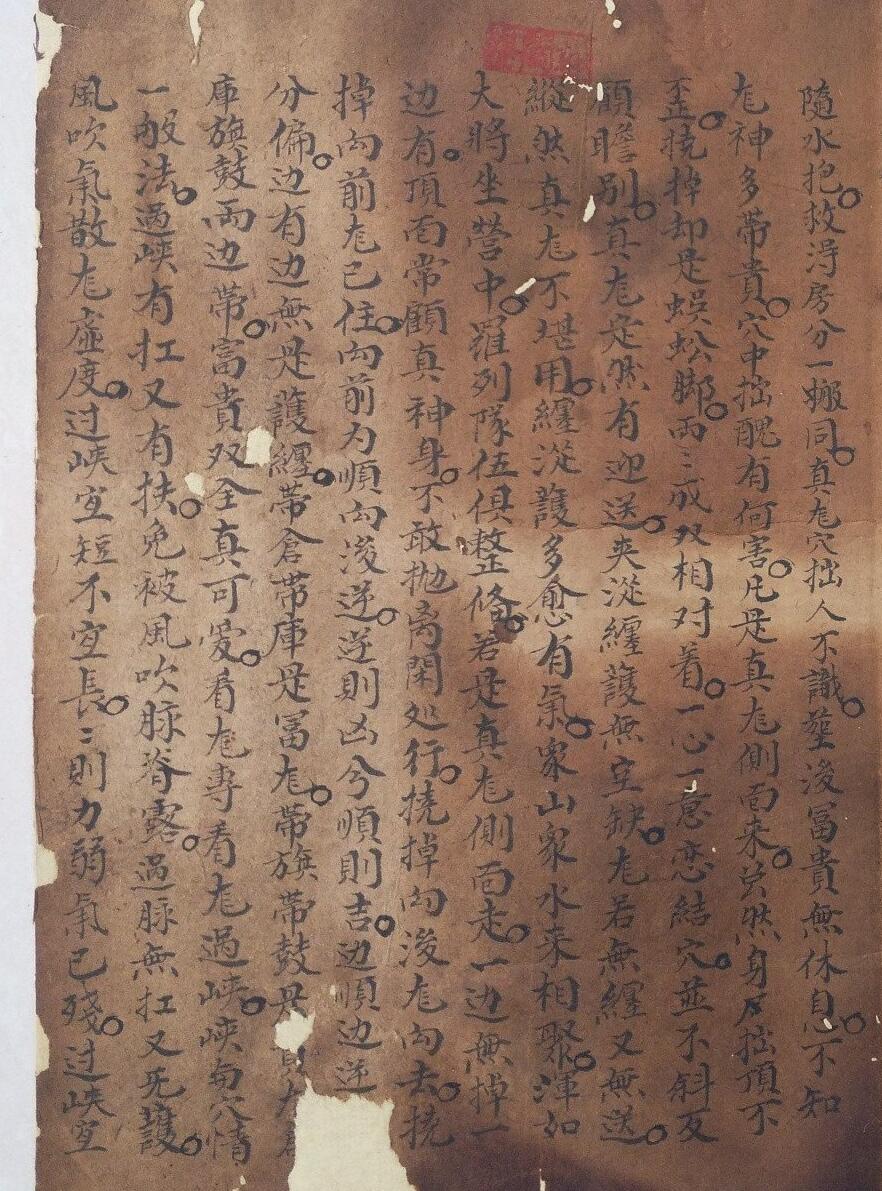 隨水抱救得房分一搬同真尨穴拙人不識塟後冨貴無休息不知
尨神多帶貴穴中拙醜有何害凡是真尨側面来前然身反拙頂不
歪挠掉却是蜈蚣脚両三成双相对着一心一意恋結穴並不斜反
顧瞻別真尨定然有迎送夹淀纏護無空缺尨若無纏又無送
縱然真尨不堪用纏淀護多愈有氣衆山衆水来相聚渾如
大將坐營中羅列隊伍俱整俻若是真尨側面走一边無掉一
边有頂面常顧真神身不敢抛离閑処行挠掉向後尨向去挠
掉向前尨已住向前为順向後逆逆則凶兮順則吉边順边逆
分偏边有边無是護纏帶倉帶庫是冨尨帶旗帶鼓是貴尨
庫旗鼓両边帶富貴双全真可愛看尨專看尨過峡峡与穴情
一般法過峡有扛又有扶免被風吹脉脊露過脉無扛又旡護
風吹氣散尨虛度过峡宜短不宜長〻則力弱氣已殘过峡宜